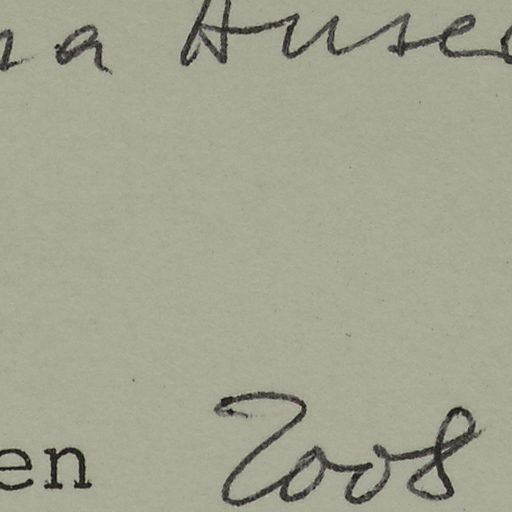 na Ause
en 2008